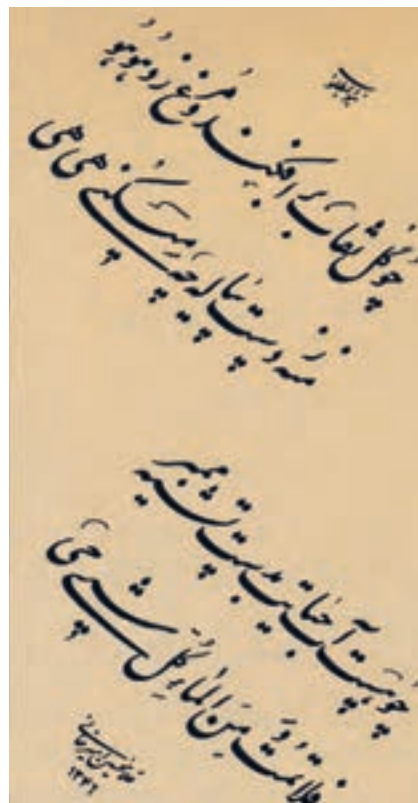 چو گل نقاب بر افکند و مرغ زد هو هو
منه ز دست پیاله چه میکنی هی هی
چو هست آب حیاتت بدست تشنه ممیر
فلا تمت و من الماء کل شیء حی
غلامحسین امیرخانی